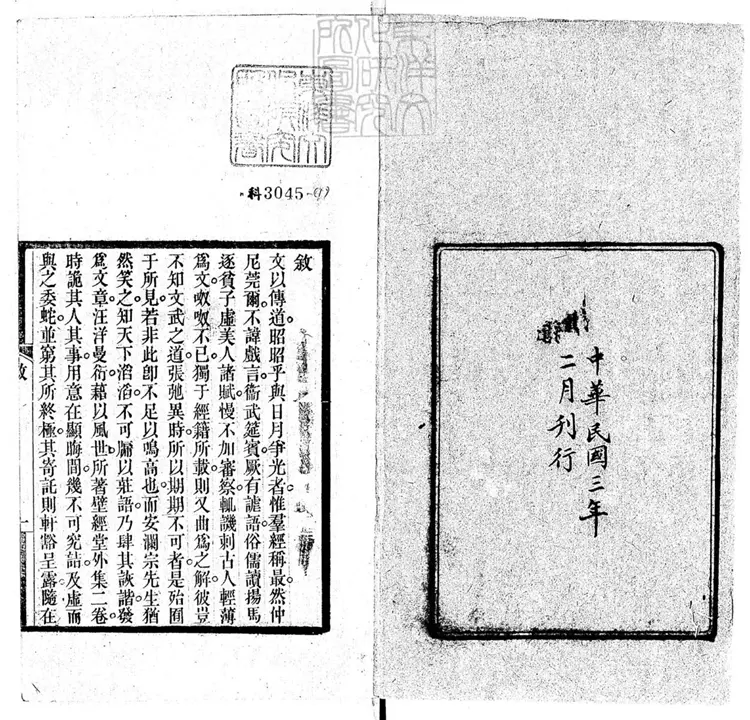 中華民國三年
二月刊行
科3045
敘
文以傳道昭昭乎與日月爭光者惟羣經稱最然仲
尼莞爾不諱戲言衞武筵賓厥有謔語俗儒讀揚馬
逐貧子虛美人諸賦慢不加審察輒譏刺古人輕薄
爲文呶呶不已獨于經籍所載則又曲爲之解彼豈
不知文武之道張弛異時所以期期不可者是殆囿
于所見若非此卽不足以鳴高也而安瀾宗先生猶
然笑之知天下滔滔不可牖以莊語乃肆其詼諧發
爲文章汪洋曼衍藉以風世所著壁經堂外集二卷
時詭其人其事用意在顯晦間幾不可究詰及虛而
與之委蛇並窮其所終極其寄託則軒豁呈露隨在
敘
一